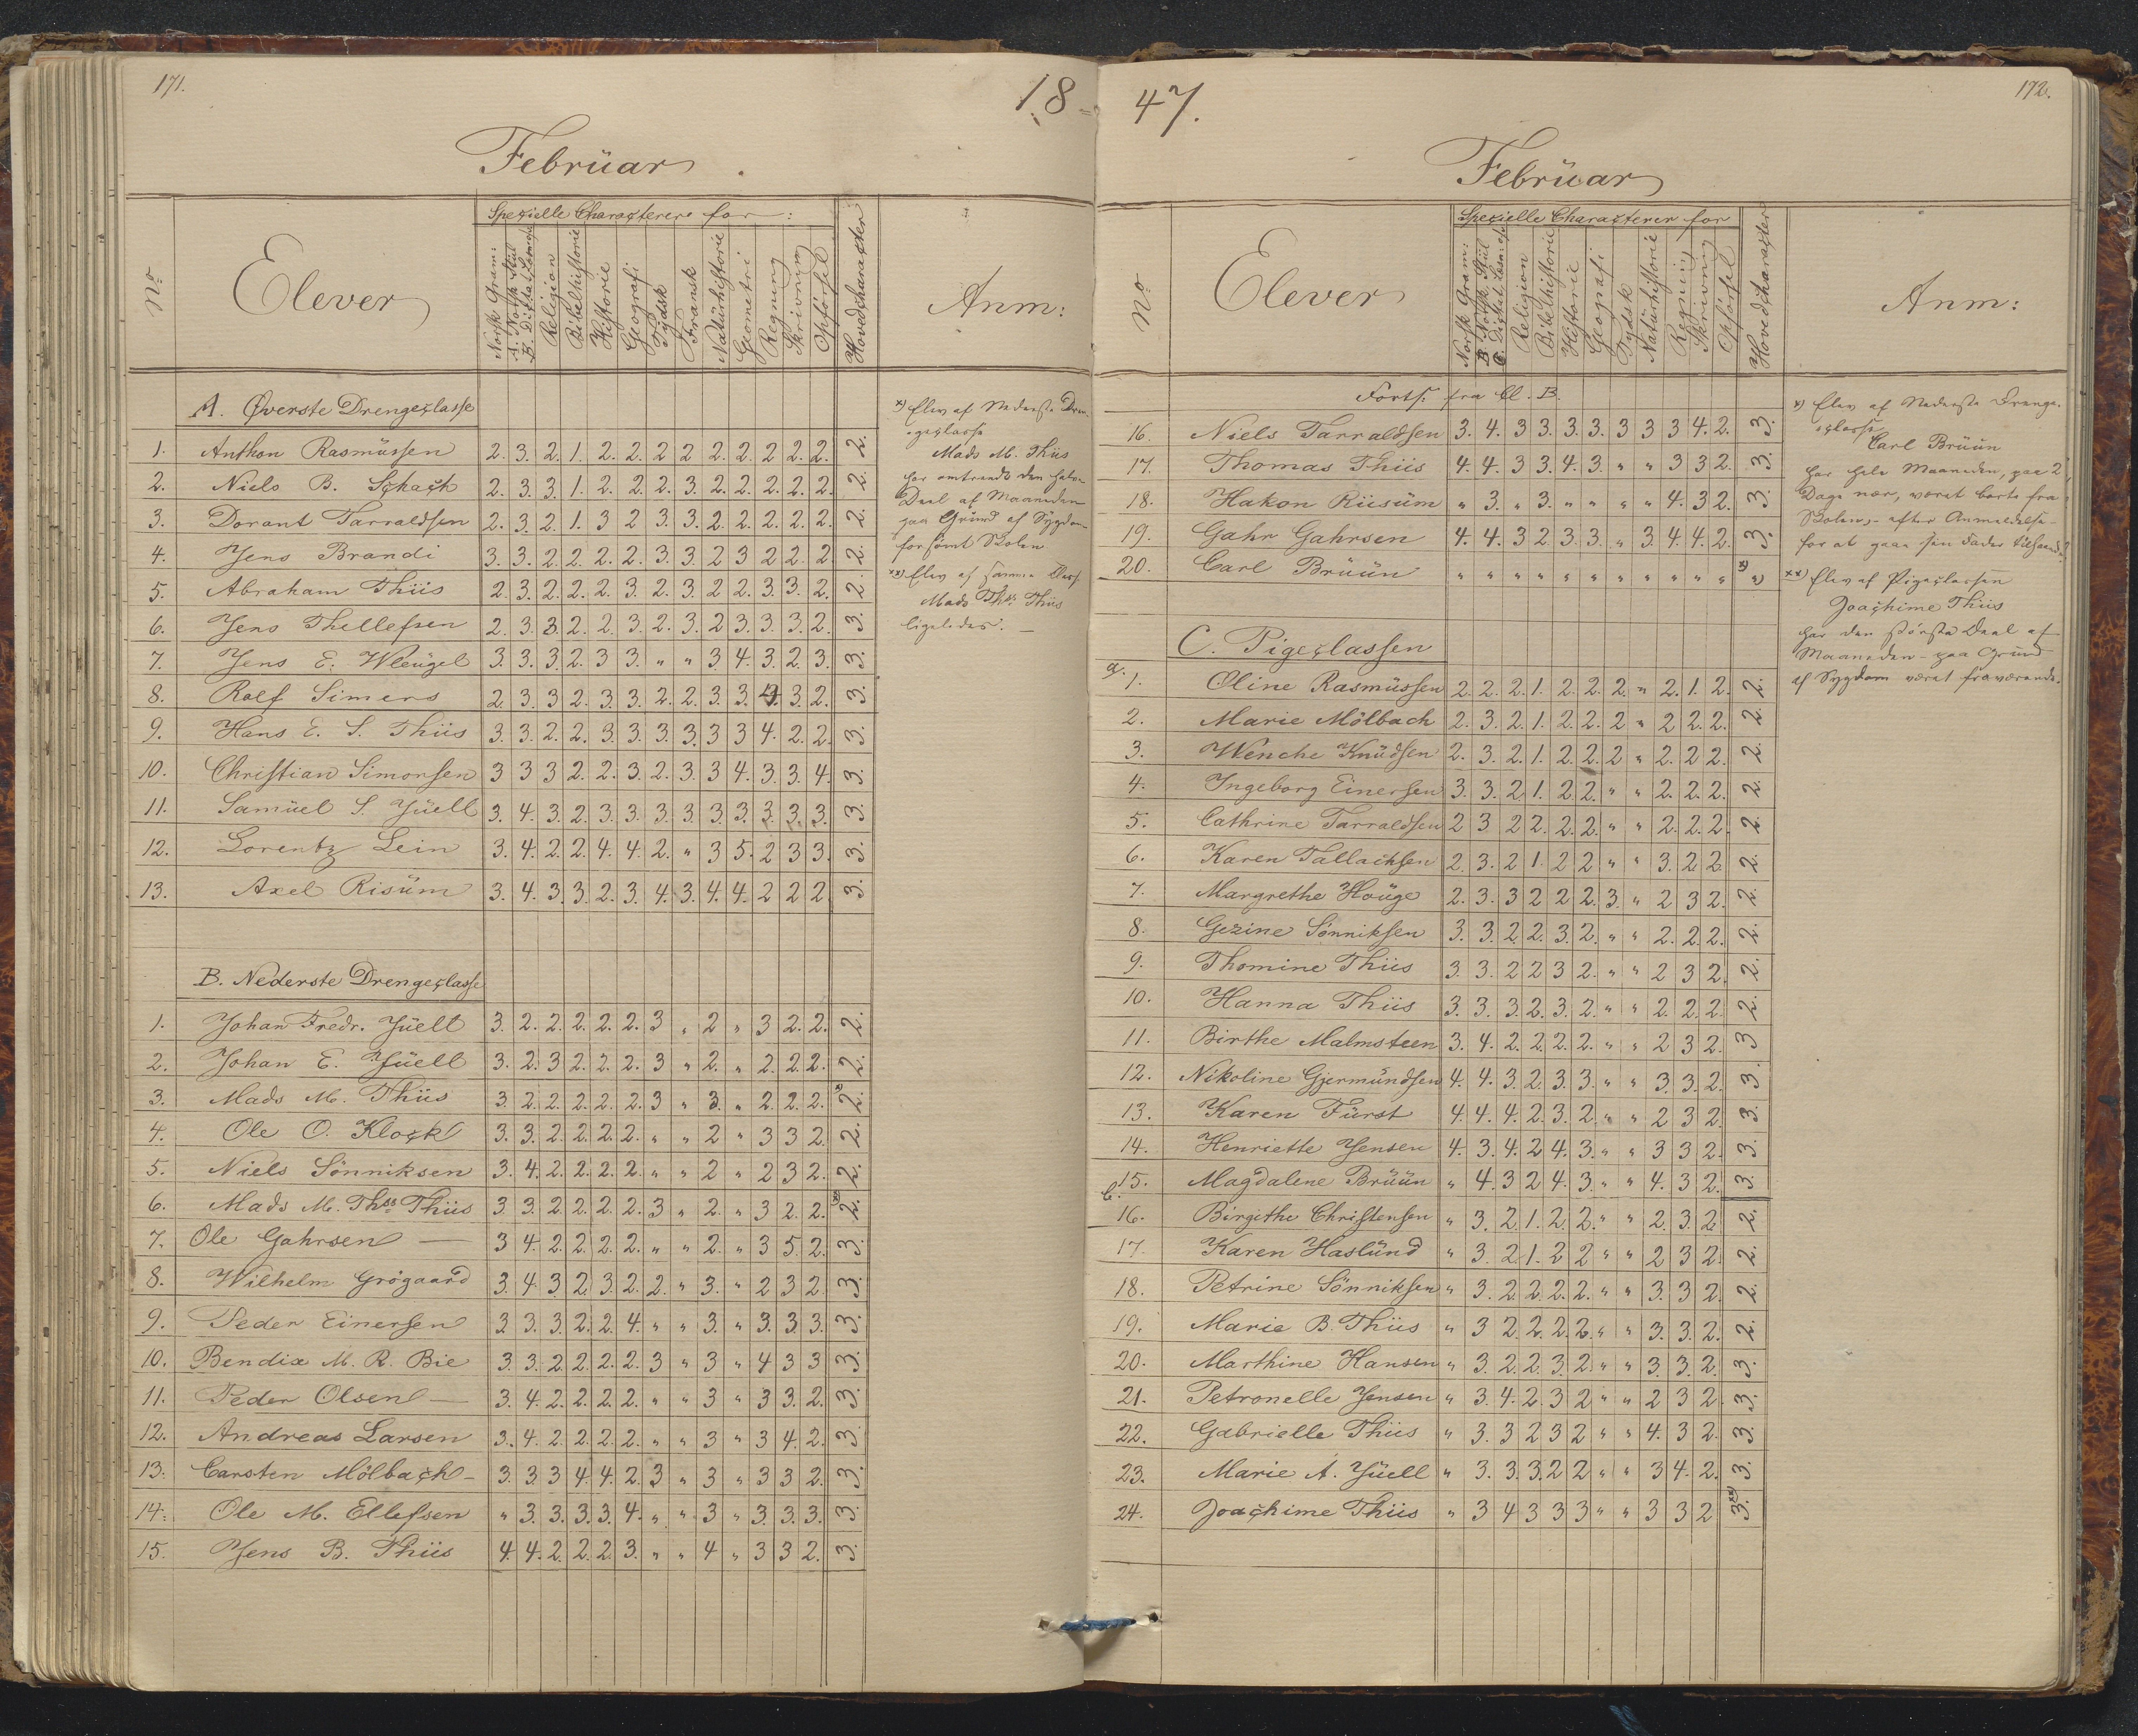 171.
18-
Februar
Spezielle Characterer for:
No
Elever
Norsk Gram:
A. Norsk Stiil
B. Dictat Læsn:
Religion
Bibelhistorie
Historie
Geografi
Tydsk
Fransk
Natürhistorie
Geometri
Regning
Skrivning
Opførsel
Hovedcharacter
Anm:
A. Øverste Drengeclasse
1. Anthon Rasmüssen 2. 3. 2. 1. 2. 2. 2 2 2. 2. 2 2. 2. 2.
2. Niels B. Schack 2. 3. 3. 1. 2. 2. 2. 3. 2. 2. 2. 2. 2. 2.
3. Dorant Tarraldsen 2. 3. 2. 1. 3 2 3. 3. 2. 2. 2. 2. 2. 2.
4. Jens Brandi 3. 3. 2. 2. 2. 2. 3. 3. 2 3 2 2. 2. 2.
5. Abraham Thiis 2. 3. 2. 2. 2. 3. 2. 3. 2 2. 3. 3. 2. 2.
6. Jens Thellefsen 2. 3. 3. 2. 2. 3. 2. 3. 2 3. 3. 3. 2. 3.
7. Jens E. Wleügel 3. 3. 3. 2. 3 3. " " 3. 4. 3. 2. 3. 3.
8. Rolf Simers 2. 3. 3 2. 3. 3. 2. 2. 3. 3. 4. 3. 2. 3.
9. Hans E. S. Thiis 3. 3. 2. 2. 3. 3. 3. 3. 3 3 4. 2. 2. 3.
10. Christian Simonsen 3 3 3 2. 2. 3. 2. 3. 3 4. 3. 3. 4. 3.
11. Samüel S. Jüell 3. 4. 3. 2. 3. 3. 3. 3. 3. 3. 3. 3. 3. 3.
12. Lorentz Lein 3. 4. 2. 2. 4. 4. 2. " 3 5. 2 3 3. 3.
13. Axel Risüm 3. 4. 3. 3. 2. 3. 4. 3. 4. 4. 2 2 2. 3.
B. Nederste Drengeclasse
1. Johan Fredr. Jüell 3. 2. 2. 2. 2. 2. 3 " 2 " 3 2. 2. 2.
2. Johan E. Jüell 3. 2. 3 2. 2. 2. 3 " 2. " 2. 2. 2. 2.
3. Mads M. Thiis 3. 2. 2. 2. 2. 2. 3 " 3. " 2. 2. 2. 2. x)
4. Ole O. Klock 3. 3. 2. 2. 2. 2. " " 2 " 3 3 2. 2.
5. Niels Sönniksen 3. 4. 2. 2. 2. 2. " " 2 " 2 3 2. 2.
6. Mads M. Thss Thiis 3. 3. 2. 2. 2. 2. 3 " 2. " 3 2. 2. 2. xx)
7. Ole Gahrsen — 3 4. 2. 2. 2. 2. " " 2. " 3 5. 2. 3.
8. Wilhelm Grögaard 3. 4. 3. 2. 3. 2. 2. " 3. " 2 3 2. 3.
9. Peder Einersen 3 3. 3. 2. 2. 4. " " 3. " 3. 3. 3. 3.
10. Bendix M. R. Bie 3. 3. 2. 2. 2. 2. 3 " 3 " 4 3 3 3.
11. Peder Olsen — 3. 4. 2. 2. 2. 2. " " 3 " 3 3. 2. 3.
12. Andreas Larsen 3. 4. 2. 2. 2. 2. " " 3 " 3 4. 2. 3.
13. Carsten Mölbach - 3. 3. 3 4. 4. 2. 3 " 3 " 3 3 2. 3.
14. Ole M. Ellefsen " 3. 3. 3. 3. 4. " " 3 " 3. 3. 3. 3.
15. Jens B. Thiis 4. 4. 2. 2. 2. 3. " " 4 " 3 3 2. 3.
x) Elev af Nederste Dren-
geclasse
Mads M. Thiis
har omtrendt den halve
Deel af Maaneden
paa Grund af Sygdom
forsömt Skolen
xx) Elev af samme Classe
Mads Thss Thiis
ligeledes. —
47.
172.
Februar
Spezielle Characterer for
No
Elever
Norsk Gram:
B. Norsk Stiil
C. Dictat Læsn:
Religion
Bibelhistorie
Historie
Geografi
Tydsk
Natürhistorie
Regning
Skrivning
Opførsel
Hovedcharacter
Anm:
Forts: fra Cl. B.
16. Niels Tarraldsen 3. 4. 3 3. 3. 3. 3 3 3 4. 2. 3.
17. Thomas Thiis 4. 4. 3 3. 4. 3. " " 3 3 2. 3.
18. Hakon Riisüm " 3. " 3. " " " " 4. 3 2. 3.
19. Gahr Gahrsen 4. 4. 3 2. 3. 3. " 3. 4. 4. 2. 3.
20. Carl Brüün " " " " " " " " " " " " x)
C. Pigeclassen
a. 1. Oline Rasmüssen 2. 2. 2. 1. 2. 2. 2. " 2. 1. 2. 2.
2. Marie Mölbach 2. 3. 2. 1. 2. 2. 2 " 2 2. 2. 2.
3. Wenche Knüdsen 2. 3. 2. 1. 2. 2. 2 " 2. 2 2. 2.
4. Ingeborg Einersen 3. 3. 2. 1. 2 2. " " 2. 2. 2. 2.
5. Cathrine Tarraldsen 2 3 2 2. 2. 2. " " 2. 2. 2. 2.
6. Karen Tallacksen 2. 3. 2 1. 2 2 " " 3. 2 2. 2.
7. Margrethe Houge 2. 3. 3 2 2 2. 3. " 2 3 2. 2.
8. Gezine Sönniksen 3. 3. 2. 2. 3. 2. " " 2. 2. 2. 2.
9. Thomine Thiis 3. 3. 2 2 3 2. " " 2 3 2. 2.
10. Hanna Thiis 3. 3. 3. 2. 3. 2. " " 2. 2. 2. 2.
11. Birthe Malmsteen 3. 4. 2. 2. 2. 2. " " 2 3 2. 3
12. Nikoline Gjermündsen 4. 4. 3. 2. 3. 3. " " 3. 3. 2. 3.
13. Karen Fürst 4. 4. 4. 2. 3. 2. " " 2 3 2. 3.
14. Henriette Jensen 4. 3. 4. 2 4. 3. " " 3 3 2. 3.
15. Magdalene Brüün " 4. 3 2 4. 3. " " 4. 3 2. 3.
b. 16. Birgithe Christensen " 3. 2. 1. 2. 2. " " 2. 3. 2. 2.
17. Karen Haslünd " 3. 2. 1. 2 2 " " 2 3 2. 2.
18. Petrine Sönniksen " 3. 2. 2. 2. 2. " " 3. 3 2. 2.
19. Marie B. Thiis " 3 2. 2. 2. 2. " " 3. 3. 2. 2.
20. Marthine Hansen " 3. 2. 2. 3. 2. " " 3. 3. 2. 3.
21. Petronelle Jensen " 3. 4. 2. 3 2 " " 2 3 2. 3.
22. Gabrielle Thiis " 3. 3 2 3 2 " " 4. 3 2. 3.
23. Marie A. Jüell " 3. 3. 3. 2 2 " " 3 4. 2. 3.
24. Joachime Thiis " 3 4 3 3 3 " " 3 3 2 3. xx)
x) Elev af Nederste Drenge-
classe
Carl Brüün
har hele Maaneden, paa 2
Dage nær, været borte fra
Skolen, - efter Anmeldelse -
for at gaae sin Fader tilhaande.
xx) Elev af Pigeclassen
Joachime Thiis
har den største Deel af
Maaneden - paa Grund
af Sygdom været fraværende.